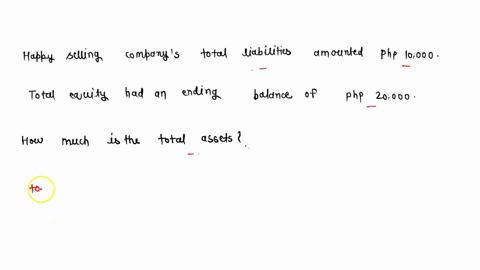 Happy selling company's total liabilities amounted php 10,000.
Total equity had an ending balance of php 20.000.
How much is the total assets?
to